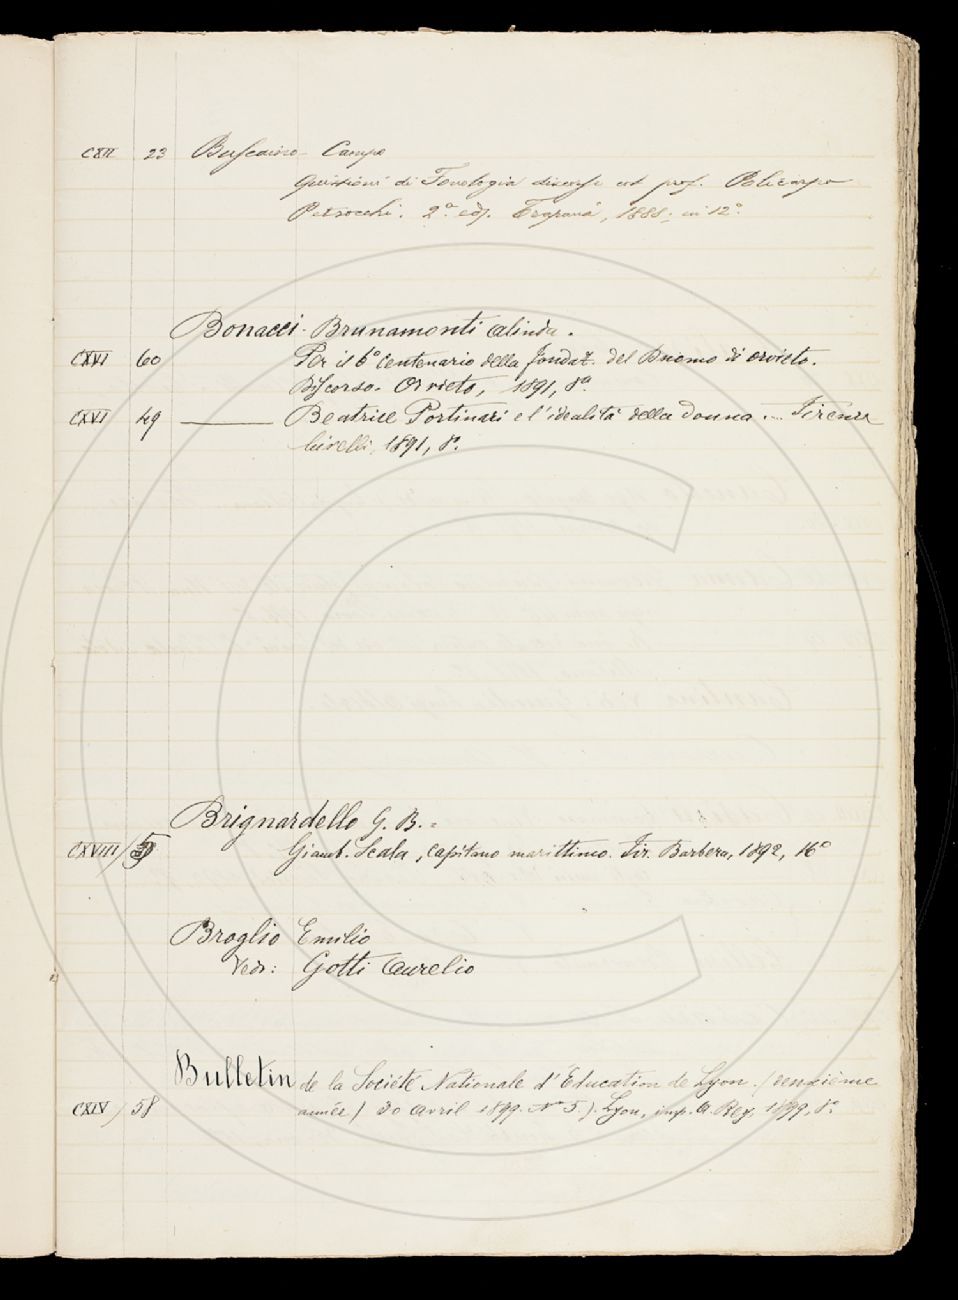 CXII 23 Buscaino-Campo
Quistioni di Fonologia discorse col prof. Policarpo
Petrocchi. 2ª. ediz. Trapani, 1888; in 12°.
Bonacci-Brunamonti Alinda.
CXVI 60 Per il 6° Centenario della fondaz. del Duomo di Orvieto.
Discorso. Orvieto, 1891, 8°.
CXVI 49 ——— Beatrice Portinari e l'idealità della donna. — Firenze
Civelli, 1891, 8°.
Brignardello G. B. =
CXVIII / 5 Giamb. Scala, capitano marittimo. Fir. Barbera, 1892, 16°
Broglio Emilio
Vedi: Gotti Aurelio
Bulletin de la Société Nationale d'Education de Lyon. (
CXIV / 58 année) 30 Avril 1899. N° 5.). Lyon, imp. A. Rey, 1899, 8°.